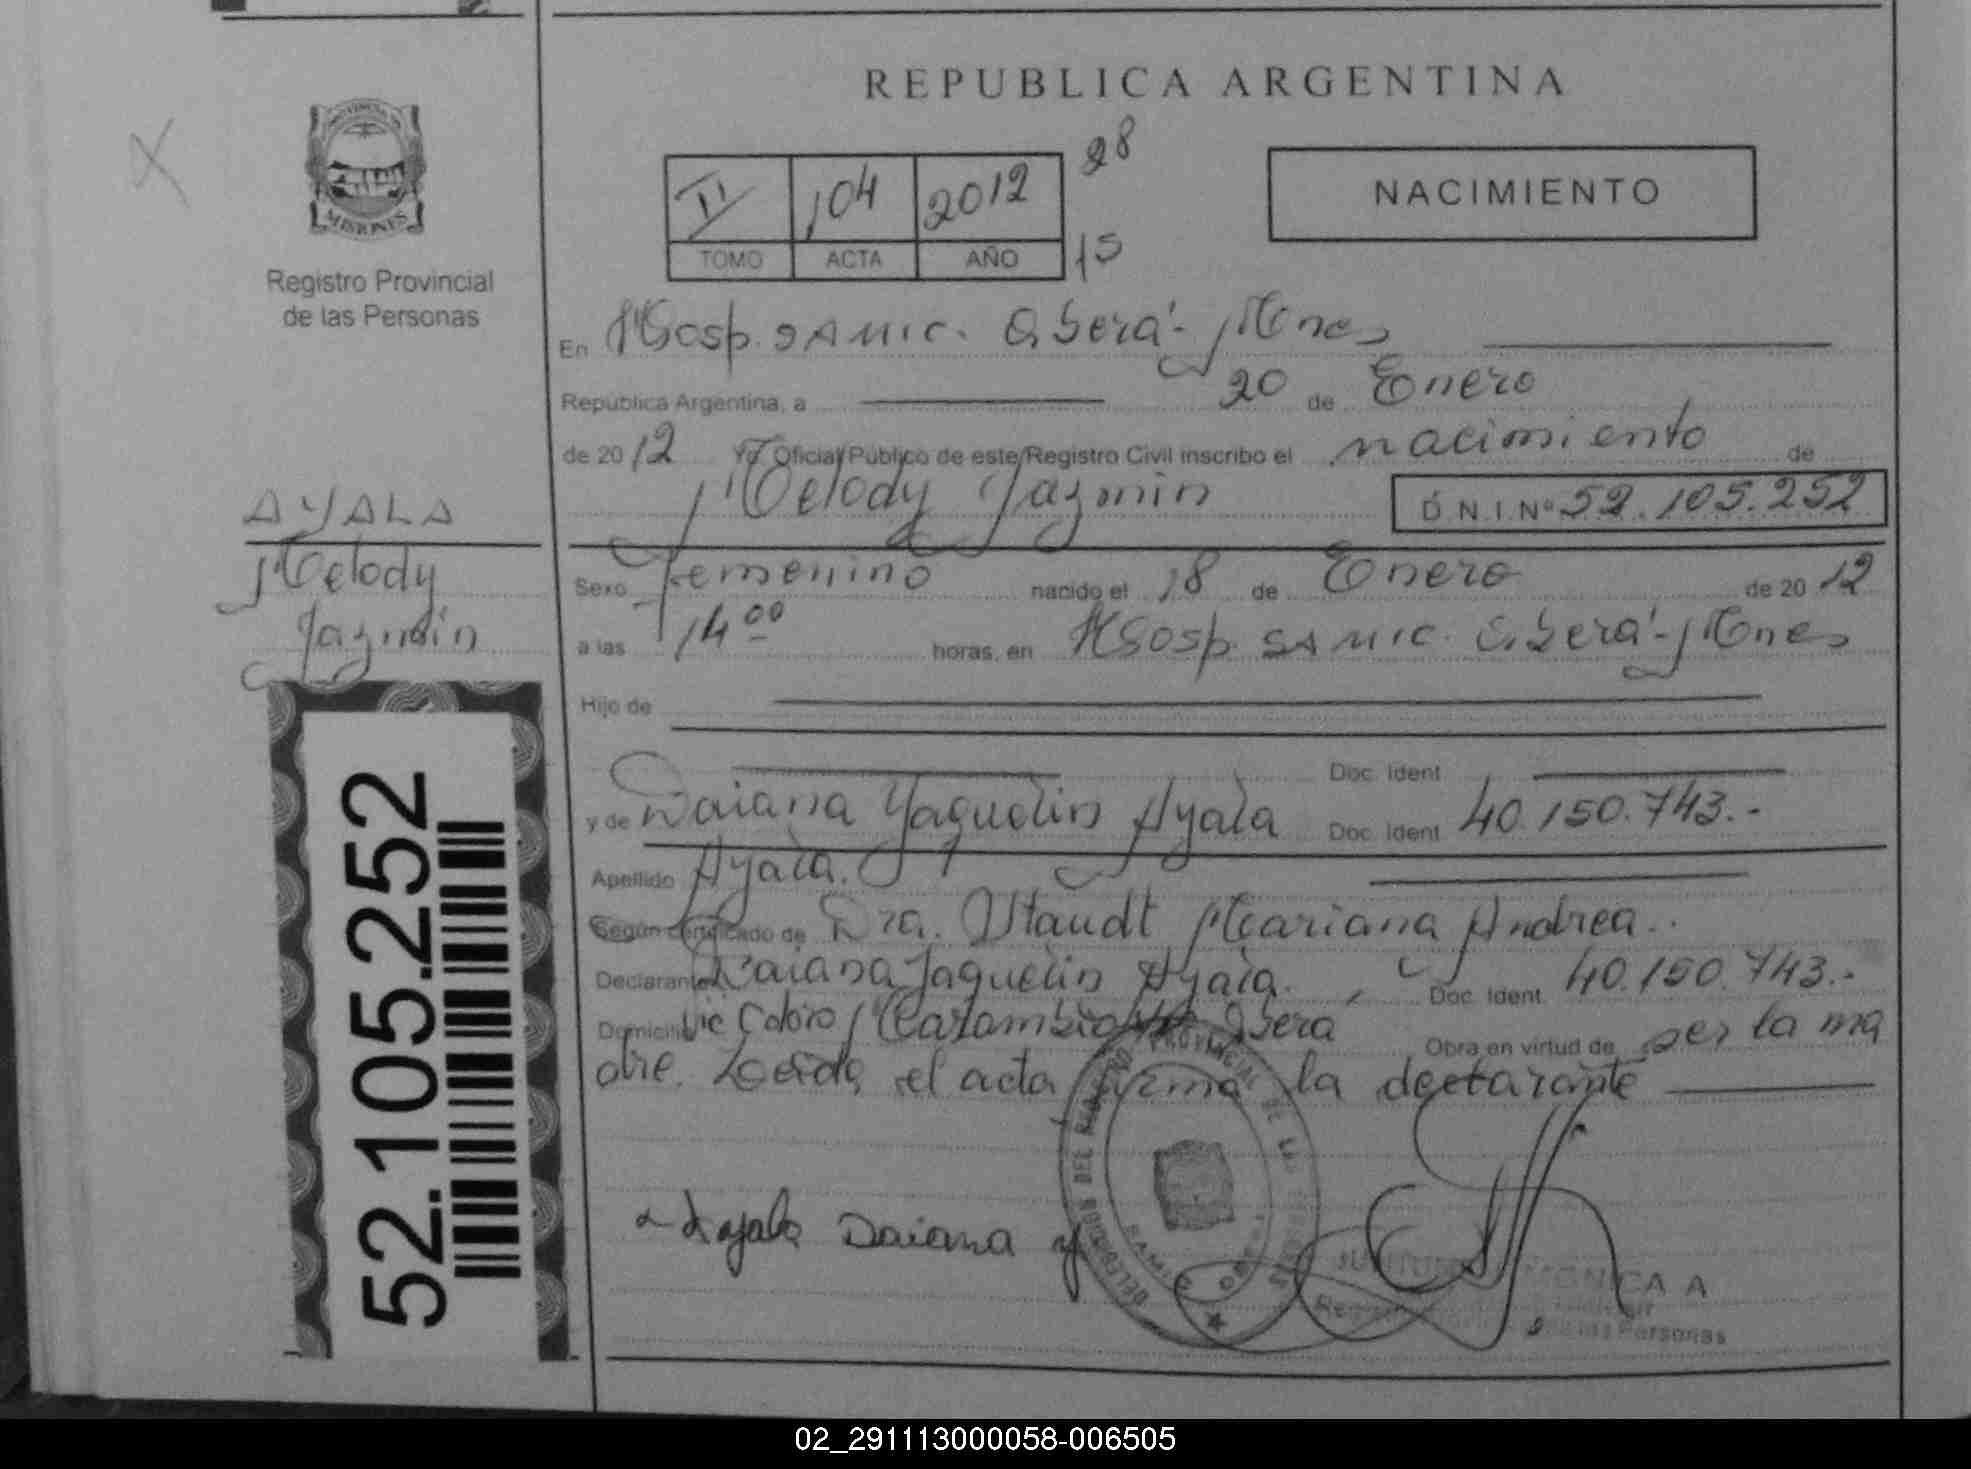 REPUBLICA ARGENTINA
MISIONES
Registro Provincial
de las Personas
II 104 2012 28
TOMO ACTA AÑO 15
NACIMIENTO
En Hosp. SAMIC. Oberá - Mnes
República Argentina, a 20 de Enero
de 2012 Yo Oficial Público de este Registro Civil inscribo el nacimiento de
Melody Jazmin D.N.I. Nº 52.105.252
AYALA
Melody
Jazmin
Sexo femenino nacido el 18 de Enero de 2012
a las 14 00 horas, en Hosp. SAMIC. Oberá - Mnes
Hijo de
Doc. Ident
y de Daiana Yaquelin Ayala Doc. Ident 40.150.743.-
Apellido Ayala.
Según certificado de Dra. Staudt Mariana Andrea.
Declarante Daiana Jaquelin Ayala. Doc. Ident 40.150.743.-
Domicilio Oberá Obra en virtud de ser la ma
dre. Leida el acta firma la declarante
Ayala Daiana y
DEL REGISTRO PROVINCIAL DE LAS
SAMIC
MONICA A
Personas
52.105.252
02_291113000058-006505